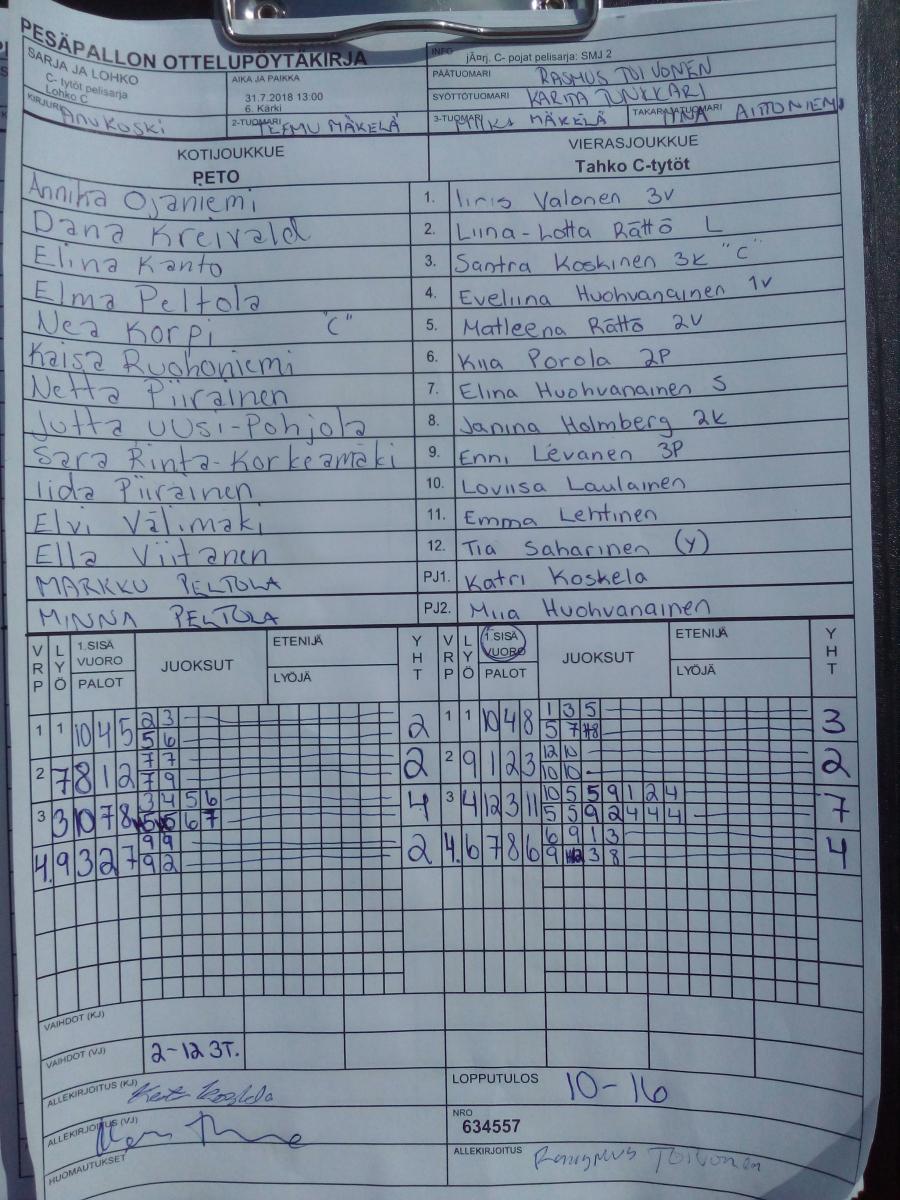 PESÄPALLON OTTELUPÖYTÄKIRJA
SARJA JA LOHKO
C- tytöt pelisarja
Lohko C
AIKA JA PAIKKA
31.7.2018 13:00
6. Kärki
INFO
jÃ¤rj. C- pojat pelisarja: SMJ 2
PÄÄTUOMARI RASMUS TOIVONEN
SYÖTTÖTUOMARI KARITA JUNKKARI
KIRJURI Anu Koski
2-TUOMARI TEEMU MÄKELÄ
3-TUOMARI MÄKELÄ
TAKARAJATUOMARI AITTONIEMI
KOTIJOUKKUE
PETO
VIERASJOUKKUE
Tahko C-tytöt
Annika Ojaniemi 1. Iiris Valonen 3v
Dana Kreivald 2. Liina-Lotta Rättö L
Elina Kanto 3. Santra Koskinen 3k "C"
Elma Peltola 4. Eveliina Huohvanainen 1v
Nea Korpi "C" 5. Matleena Rättö 2v
Kaisa Ruohoniemi 6. Kiia Porola 2P
Netta Piirainen 7. Elina Huohvanainen S
Jutta Uusi-Pohjola 8. Janina Holmberg 2k
Sara Rinta-Korkeamäki 9. Enni Levanen 3P
Iida Piirainen 10. Loviisa Laulainen
Elvi Välimäki 11. Emma Lehtinen
Ella Viitanen 12. Tia Saharinen (y)
MARKKU PELTOLA PJ1. Katri Koskela
MINNA PELTOLA PJ2. Miia Huohvanainen
VRP LYÖ 1.SISÄ VUORO PALOT JUOKSUT ETENIJÄ LYÖJÄ YHT VRP LYÖ 1.SISÄ VUORO PALOT JUOKSUT ETENIJÄ LYÖJÄ YHT
1 1 10 4 5 2 3 2 1 1 10 4 8 1 3 5 3
5 6 5 7 8
2 7 8 12 7 7 2 2 9 1 2 3 12 10 2
7 9 10 10
3 3 10 7 8 3 4 5 6 4 3 4 12 3 11 10 5 5 9 1 2 4 7
5 5 6 7 5 5 9 2 4 4 4
4. 9 3 2 7 9 9 2 4. 6 7 8 6 6 9 1 3 4
9 2 9 2 3 8
VAIHDOT (KJ)
VAIHDOT (VJ) 2-12 3T.
ALLEKIRJOITUS (KJ)
LOPPUTULOS 10-16
ALLEKIRJOITUS (VJ)
NRO
634557
HUOMAUTUKSET
ALLEKIRJOITUS Rasmus Toivonen